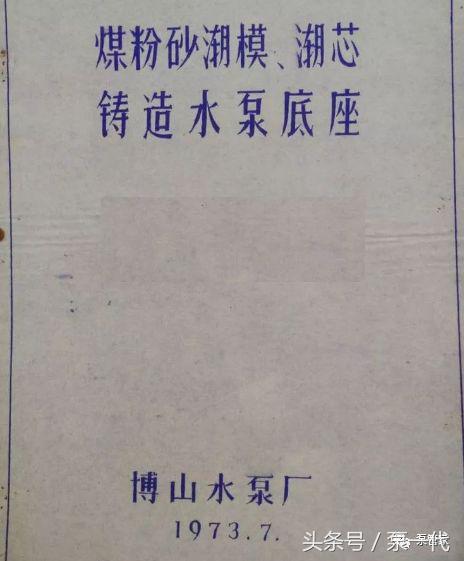 煤粉砂潮模、潮芯
铸造水泵底座
博山水泵厂
1973.7.
头条号／泵一代